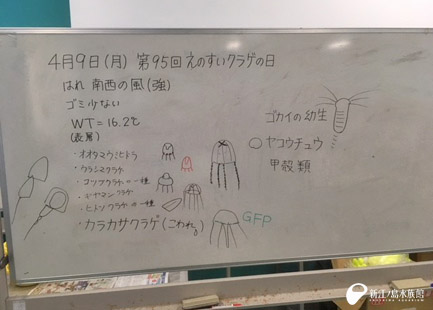 4月9日(月) 第95回 えのすいクラゲの日
はれ 南西の風(強)
ゴミ少ない
WT=16.2℃
(表層)
・オオタマウミヒドラ
・ウラシマクラゲ
・コツブクラゲの一種
・ミヤマンクラゲ
・ヒトツクラゲの一種
・カラカサクラゲ(こわれ。)
ゴカイの幼生
ヤコウチュウ
甲殻類
GFP
新江ノ島水族館